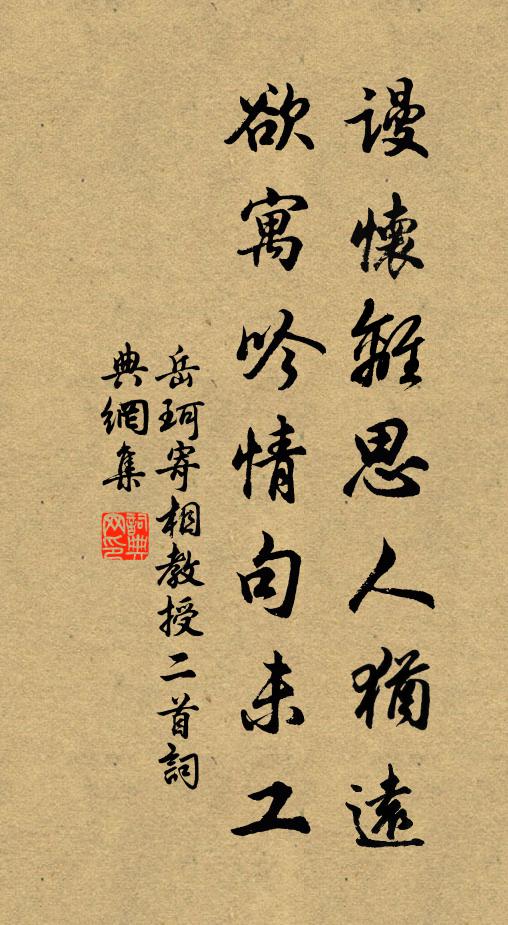 謾懷離思人猶遠
欲寓吟情句未工
岳珂寄相教授二首詞
典網集
詞典網印